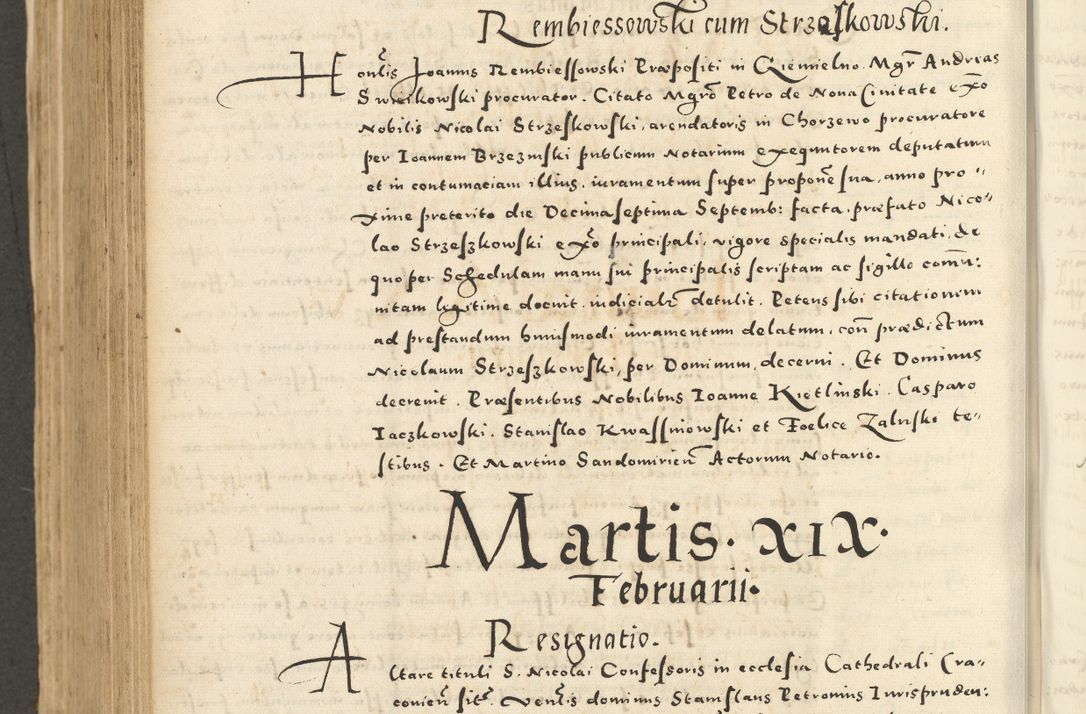 Rembiessowski cum Strzaskowski.
Honlis Joannis Rembiessowski Præpositi in Cziemielno. Mgr Andreas
Swieikowski procurator. Citato Mgro Petro de Nova Civitate exo
Nobilis Nicolai Strzeskowski, arendatoris in Chorzewo procuratore
per Ioannem Brzezinski publicum Notarium exequutorem deputatum
et in contumaciam illius, iuramentum super propone sua, anno pro-
xime preterito die Decima septima Septemb: facta, præfato Nico-
lao Strzeszkowski exo principali, vigore specialis mandati, de
quo per Schedulam manu sui principalis scriptam ac sigillo comu:
nitam legitime docuit, iudicialr detulit. Petens sibi citationem
ad prestandum huiusmodi iuramentum delatum, con prædictum
Nicolaum Strzeszkowski, per Dominum, decerni. Et Dominus
decrevit. Præsentibus Nobilibus Ioanne Kietlinski. Casparo
Iaczkowski. Stanislao Kwassniowski et Foelice Zaluski te-
stibus. Et Martino Sandomirien Actorum Notario.
Martis. XIX.
Februarii.
Resignatio.
Altare tituli S. Nicolai Confessoris in ecclesia Cathedrali Cra-
covien sits. Venlis dominus Stanislaus Petronius Iurispruden: